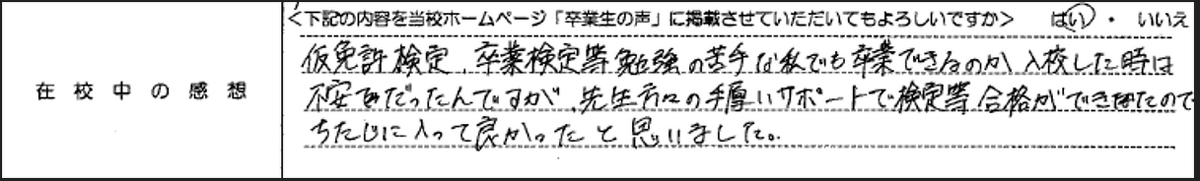 <下記の内容を当校ホームページ「卒業生の声」に掲載させていただいてもよろしいですか> はい ・ いいえ
在校中の感想
仮免許検定、卒業検定等勉強の苦手な私でも卒業できるのか入校した時は
不安だったんですが、先生方々の手厚いサポートで検定等合格ができたので
ちたじに入って良かったと思いました。